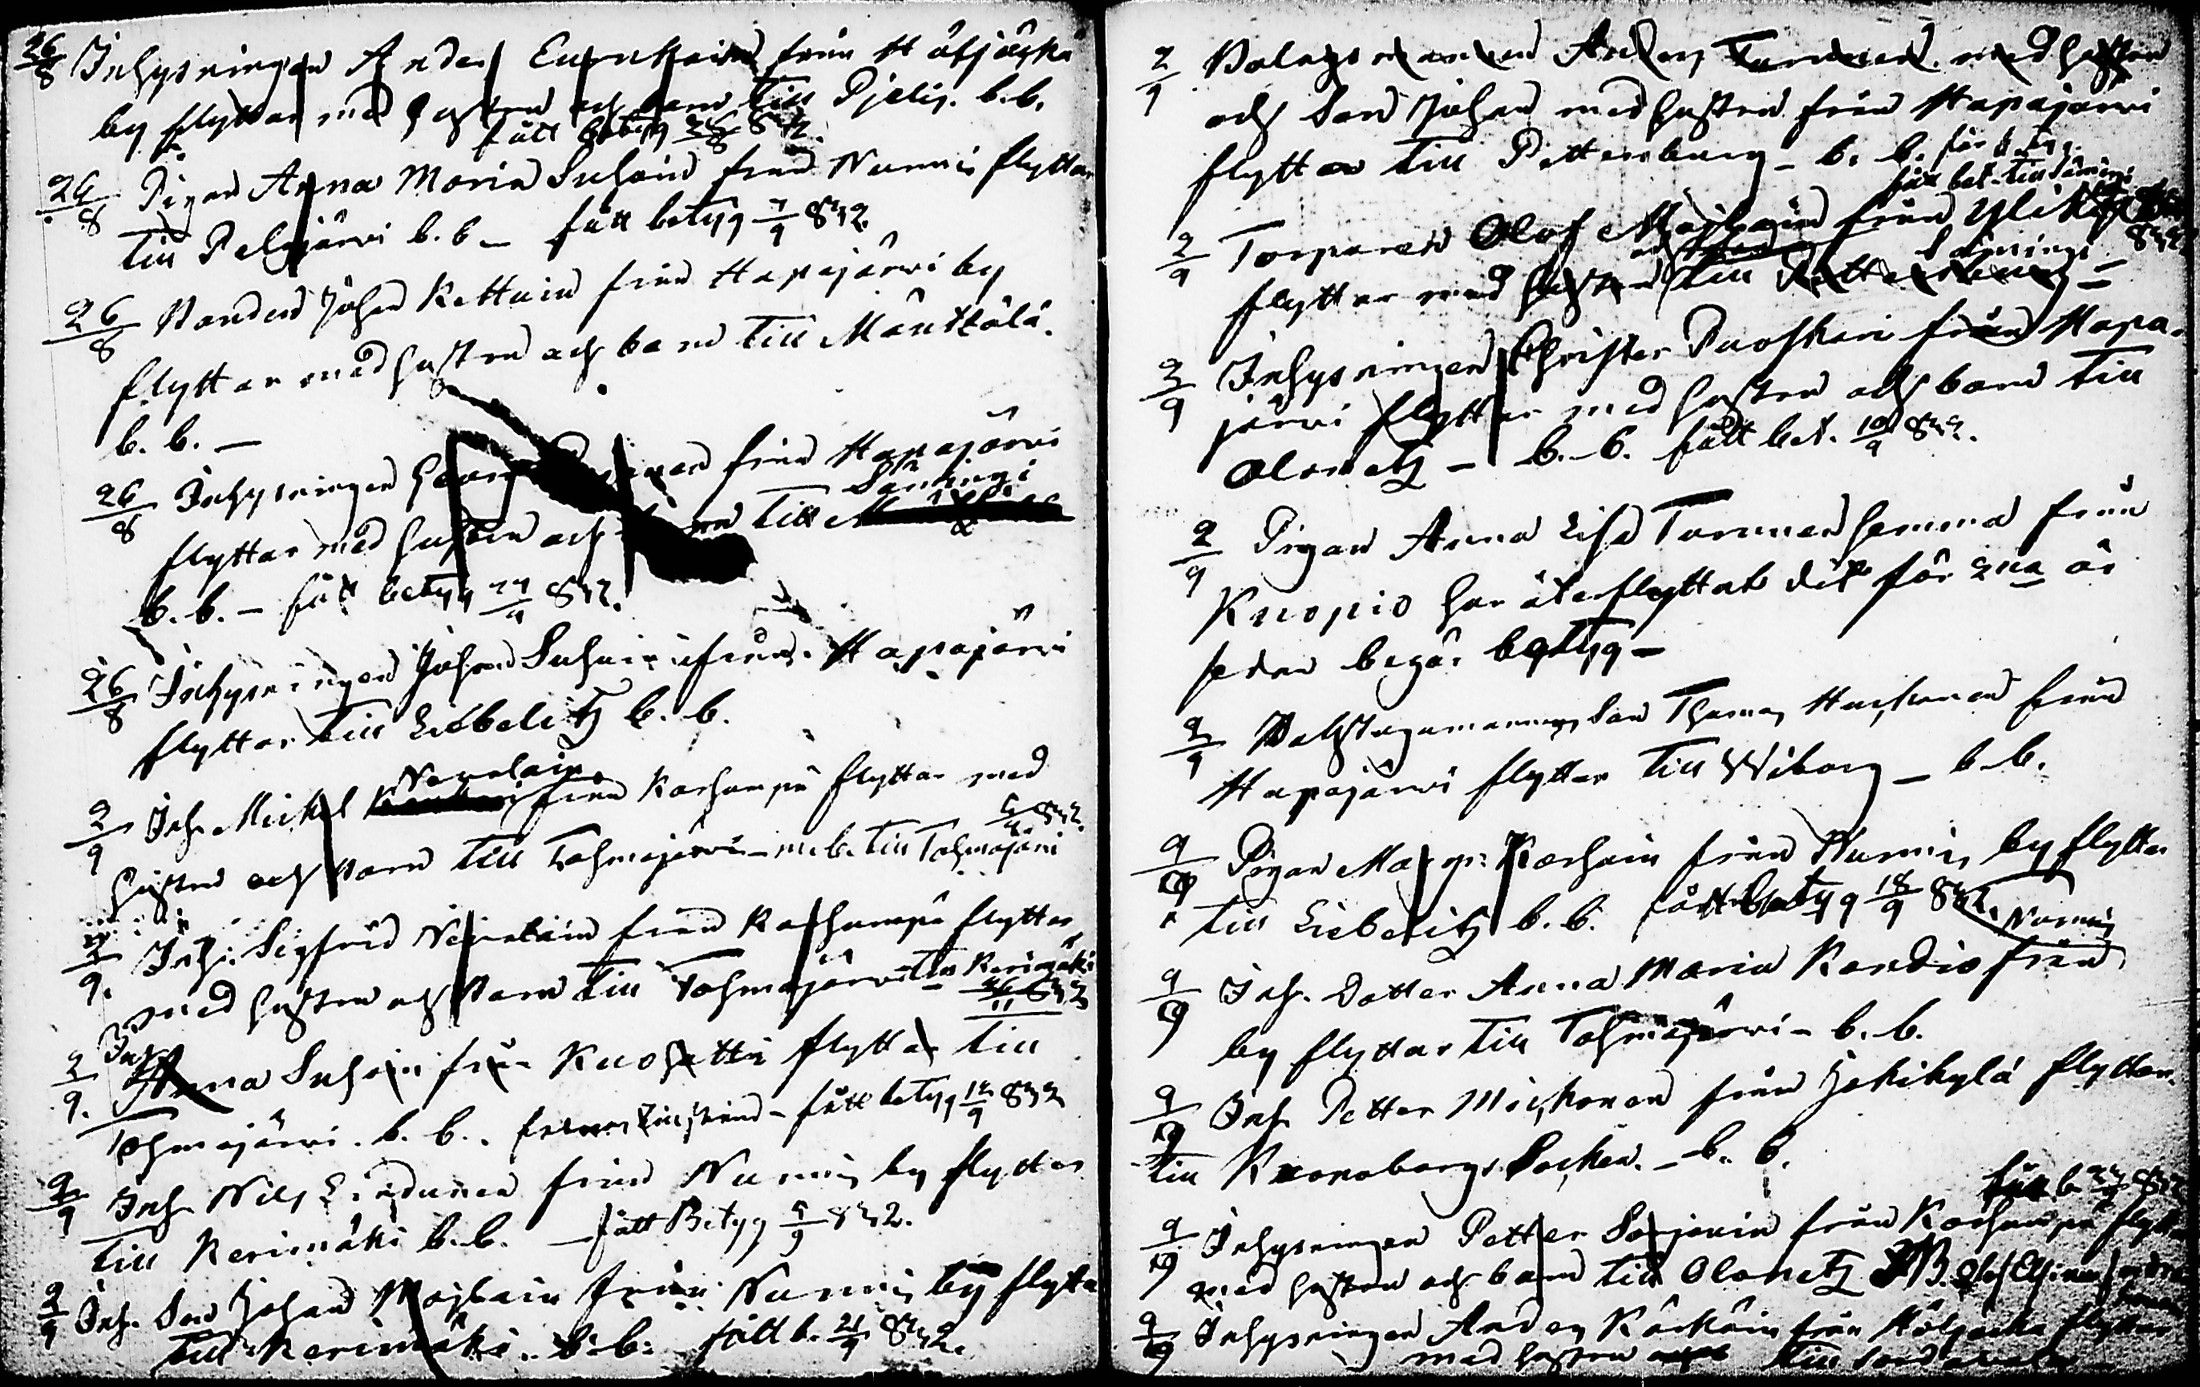 26/8 Inhysningen Anders Eurnkain från Höljäska
by flyttar med hustru och barn till Pjelis. b.b.
fått betyg 26/8 832.
26/8 Pigan Anna Maria Suhoin från Nurmis flyttar
till Pelgjärvi b.b. fått betyg 7/9 832.
26/8 Bonden Johan Kettuin från Hapajärvi by
flyttar med hustru och barn till Mäntsälä.
b.b. —
26/8 Inhysningen från Hapajärvi
Sämingi
flyttar med hustru och till
b.b. — fått betyg 832.
26/8 Inhysningen Johan Suhoin från Hapajärvi
flyttar till Liebelitz b.b.
Nevalain
2/9 Inh. Mickel från Korhanpä flyttar med
832.
hustru och barn till Tohmajärvi — m.b. till Tohmajärvi
2/9. Inh. Sigfrid Nevalain från Korhanpä flyttar
med hustru och barn till Tohmajärvi till Kerimäki
832
Inh.
2/9. Anna Suhoin från Kuohatti flyttar till
Tohmajärvi. b.b. fått betyg 12/9 832
2/9 Inh. Nils Lindunen från Nurmis by flyttar
till Kerimäki b.b. — fått Betyg 5/9 832.
2/9 Inh. Son Johan Majhain från Nurmis by flyttar
till Kerimäki. b.b. fått b. 21/9 832.
2/9 Bolagsmannen Anders Turunen med hustru
och Son Johan med hustru från Hapajärvi
flyttar till Pettersburg — b.b. får betyg.
fått bet. till Sämingi
2/9 Torparen Olof Majhain från Ylikylä
832
Sämingi
flyttar med hustru till Pettersburg —
2/9 Inhysningen Christer Puoskari från Hapa-
järvi flyttar med hustru och barn till
Olonetz — b.b. fått bet. 10/9 832.
2/9 Pigan Anna Lisa Turunen hemma från
Kuopio har återflyttat dit för 2ne år
sedan begär betyg —
2/9 Son Thomas från
Hapajärvi flyttar till Wiborg — b.b.
9/9 Pigan Margr: Korhoin från Nurmis by flyttar
till Liebelitz b.b. fått betyg 18/9 832.
Nurmis
9/9 Inh. Dotter Anna Maria Kandio från
by flyttar till Tohmajärvi — b.b.
9/9 Inh. Petter Mickonen från Jokikylä flyttar
till Kronoborgs Socken. — b.b.
fått b. 832
9/9 Inhysningen Petter Sorjoin från Korhanpä flyttar
med hustru och barn till Olonetz
9/9 Inhysningen Anders Kärkäin från Höljäska flyttar
med hustru till Sordavala